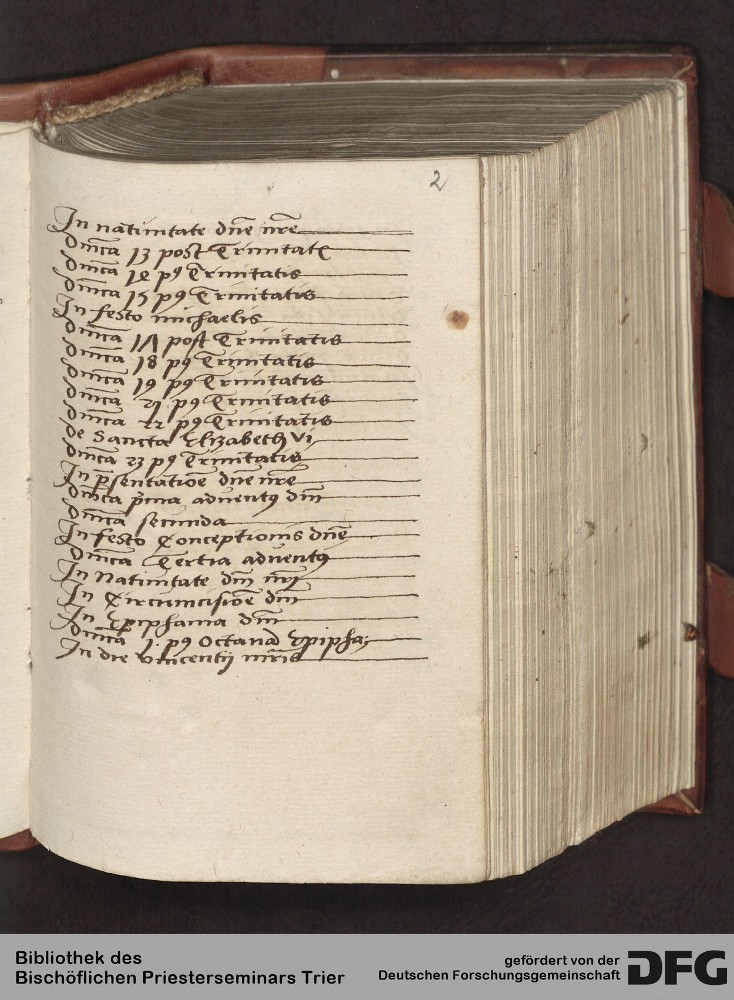 2
In natiuitate dnē nrē
Dnīca 13 post Trinitatē
Dnīca 14 p9 Trinitatis
Dnīca 15 p9 Trinitatis
In festo michaelis
Dnīca 17 post Trinitatis
Dnīca 18 p9 Trinitatis
Dnīca 19 p9 Trinitatis
Dnīca 21 p9 Trinitatis
Dnīca 22 p9 Trinitatis
De Sancta Elizabeth vi
Dnīca 23 p9 Trinitatis
In pn̄sentatiōe dnē nrē
Dnīca p̄ma aduent9 dnī
Dnīca secunda
In festo Conceptionis dnē
Dnīca Tertia aduent9
In Natiuitate dnī nrj
In Circumcisiōe dnī
In Epiphania dnī
Dnīca 1. p9 Octauā Epipha;
In die vincentij mr̄is
Bibliothek des
Bischöflichen Priesterseminars Trier
gefördert von der
Deutschen Forschungsgemeinschaft
DFG